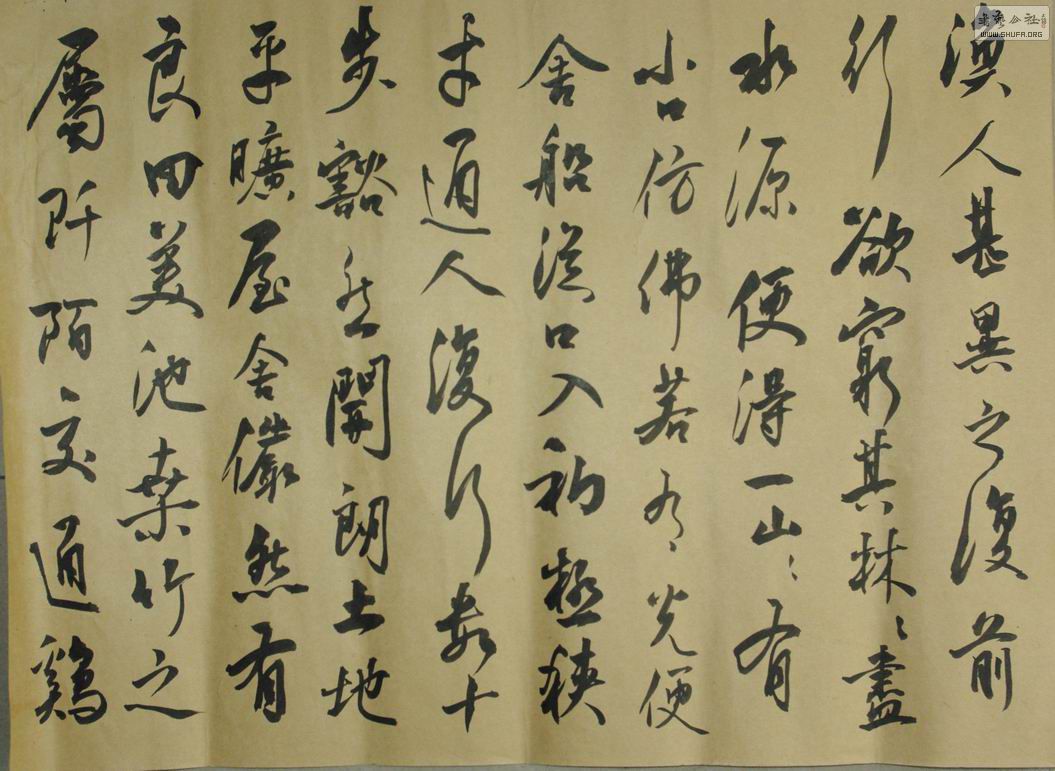 漁人甚異之復前
行欲窮其林〻盡
水源便得一山〻有
小口仿佛若有光便
舍船從口入初極狹
才通人復行數十
步豁然開朗土地
平曠屋舍儼然有
良田美池桑竹之
屬阡陌交通鷄
書藝公社
WWW.SHUFA.ORG